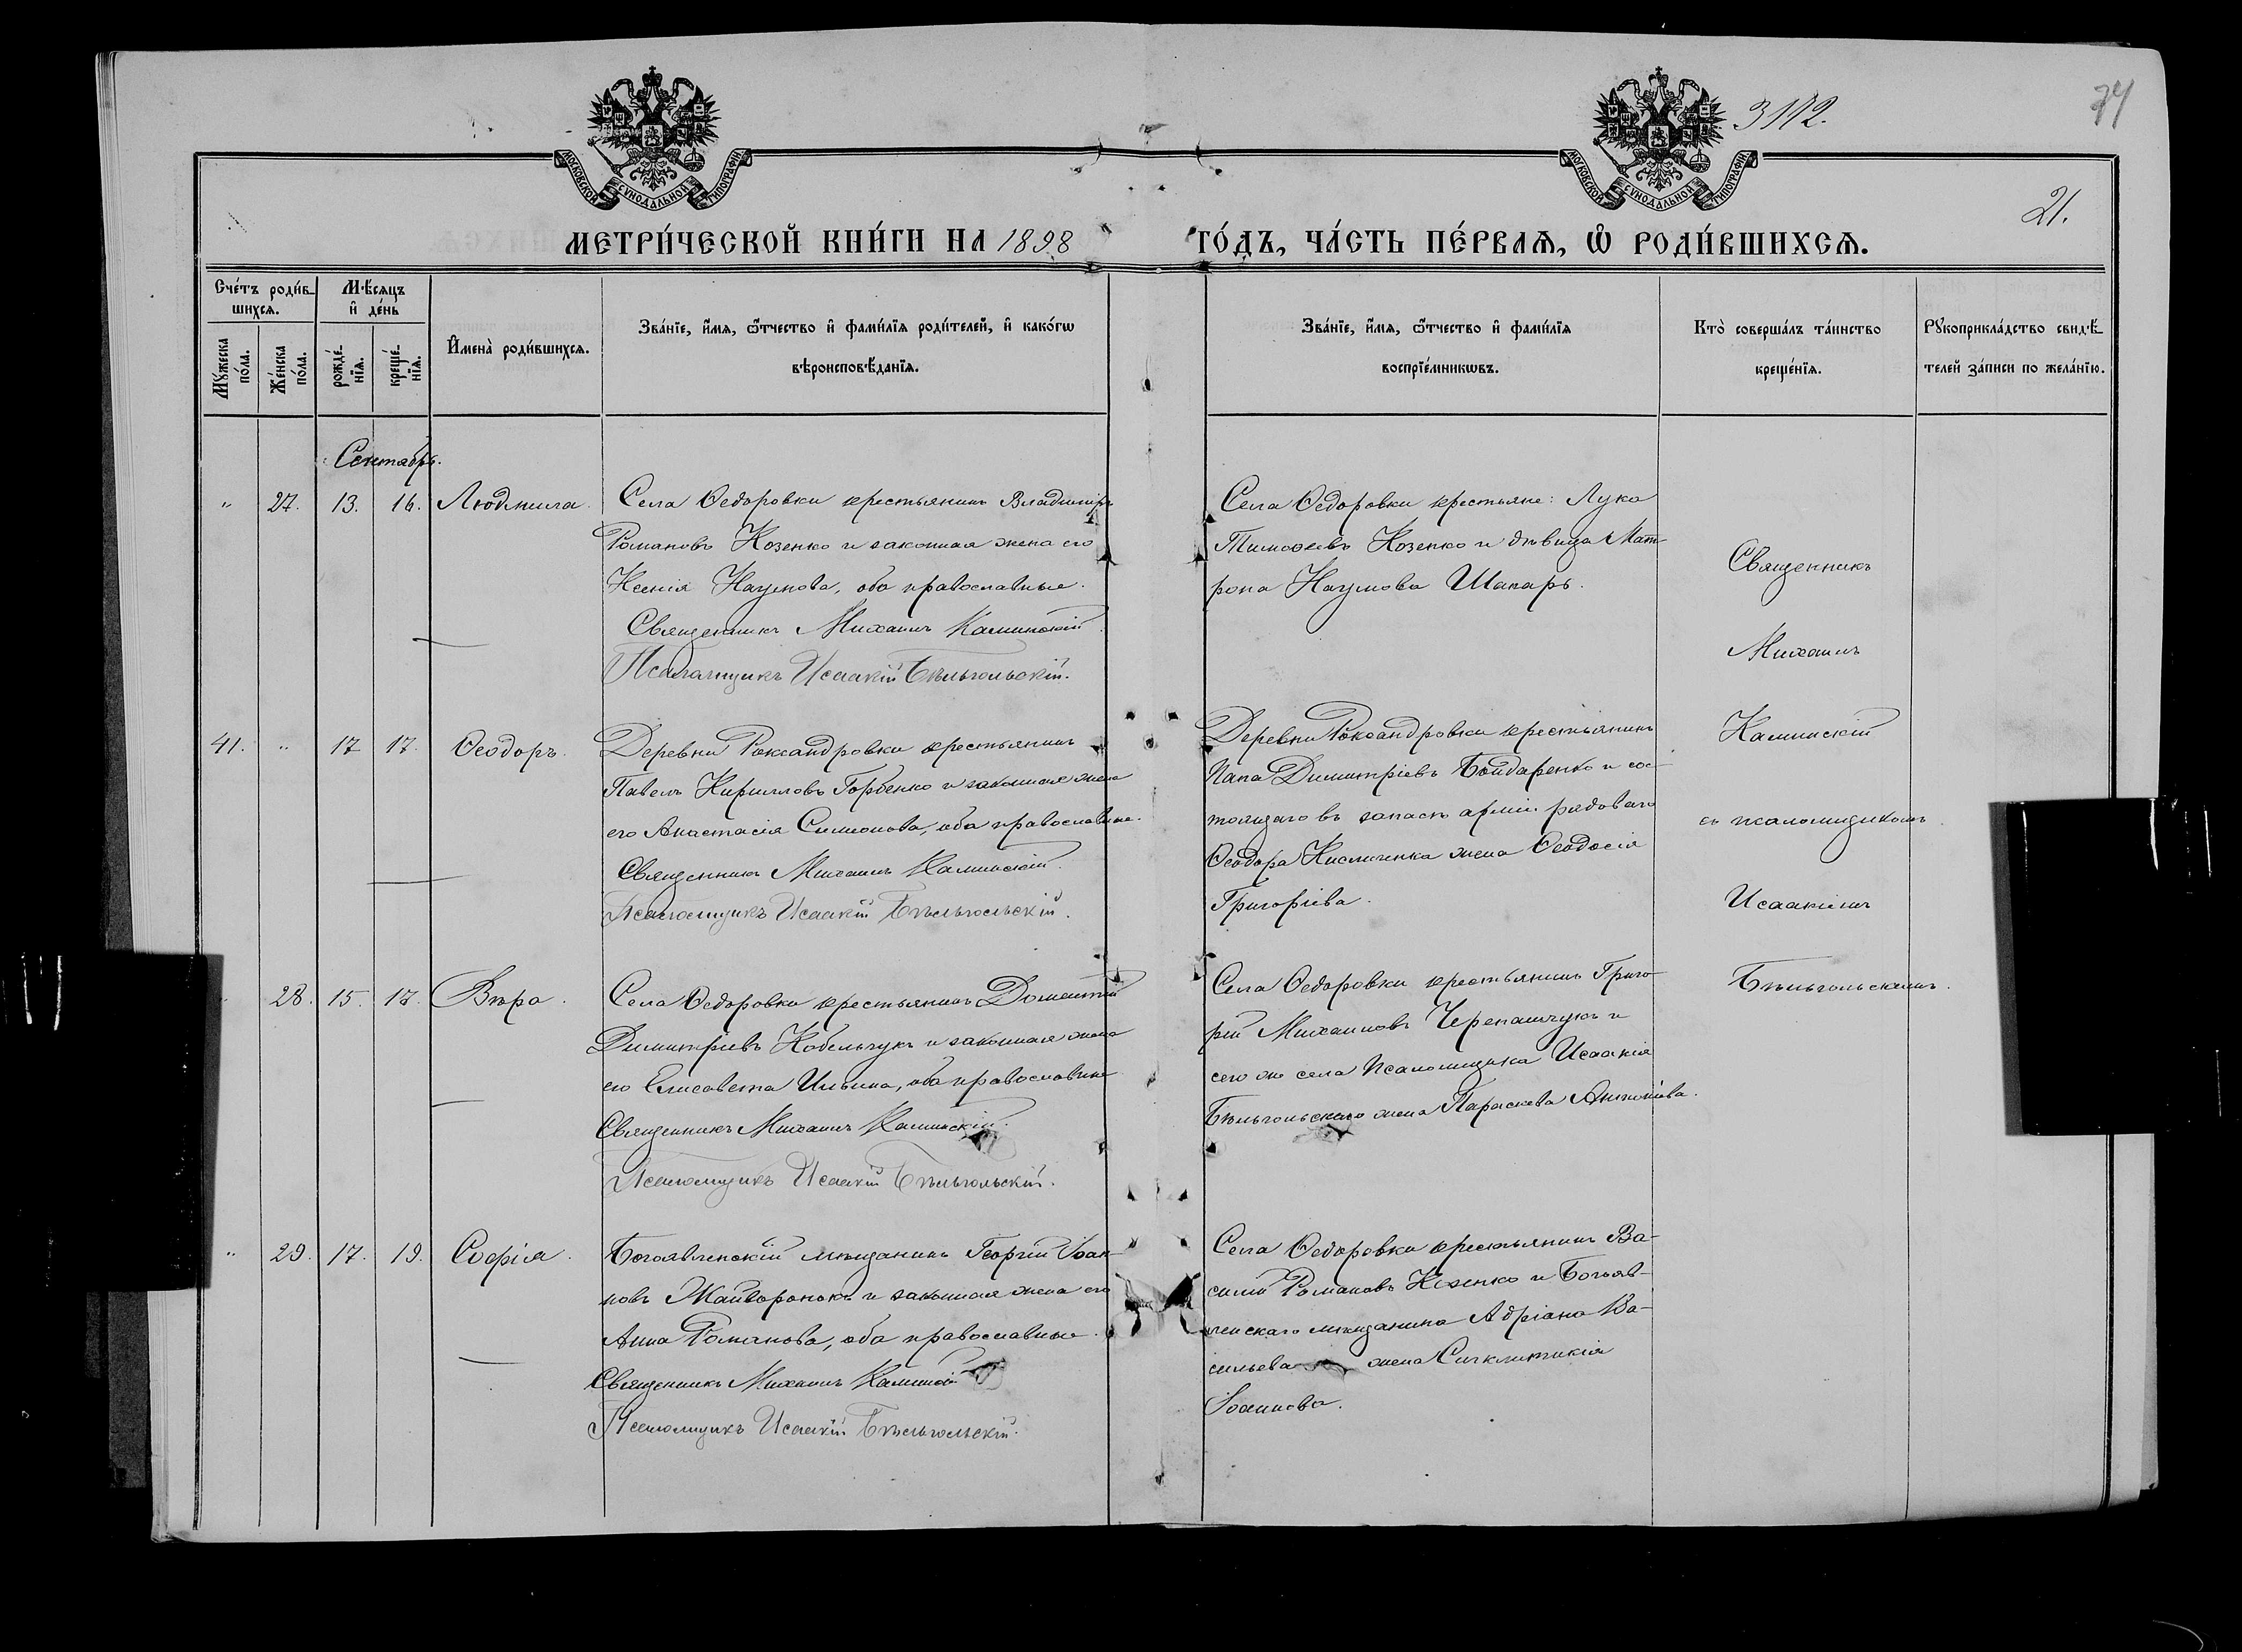 3112.
74
МОСКОВСКОЙ СѴНОДАЛЬНОЙ ТИПОГРАФІИ
МОСКОВСКОЙ СѴНОДАЛЬНОЙ ТИПОГРАФІИ
21.
МЕТРИ́ЧЕСКОЙ КНИ́ГИ НА 1898 ГО́ДЪ, ЧА́СТЬ ПЕ́РВАѦ, Ѽ РОДИ́ВШИХСѦ.
Сче́тъ роди́в-
шихсѧ.
Мѣ́сѧцъ
и҆ де́нь
Мꙋ́жеска
по́ла.
Же́нска
по́ла.
рожде́-
нїѧ.
креще́-
нїѧ.
И҆мена̀ роди́вшихсѧ.
Зва́нїе, и҆́мѧ, ѻ҆́тчество и҆ фами́лїѧ роди́телей, и҆ како́гѡ
вѣроисповѣ́данїѧ.
Зва́нїе, и҆́мѧ, ѻ҆́тчество и҆ фами́лїѧ
воспрїе́мникѡвъ.
Кто̀ соверша́лъ та́инство
креще́нїѧ.
Рꙋкоприкла́дство свидѣ́-
телей за́писи по жела́нїю.
Сентябрь.
" 27. 13. 16. Людмила.
Села Ѳедоровки крестьянинъ Владиміръ
Романовъ Козенко и законная жена его
Ксенія Наумова, оба православные.
Священникъ Михаилъ Калинскій
Псаломщикъ Исаакій Бѣльгольскій.
Села Ѳедоровки крестьяне: Лука
Тимоѳеевъ Козенко и дѣвица Мат-
рона Наумова Шапарь.
41. " 17 17. Ѳеодоръ.
Деревни Роксандровки крестьянинъ
Павелъ Кирилловъ Горбенко и законная жена
его Анастасія Симеонова, оба православные.
Священникъ Михаилъ Калинскій
Псаломщикъ Исаакій Бѣльгольскій.
Деревни Роксандровки крестьянинъ
Димитріевъ Бондаренко и сос-
тоящаго въ запасѣ арміи рядоваго
Ѳеодора Кисличенка жена Ѳеодосія
Григоріева.
" 28. 15. 17. Вѣра.
Села Ѳедоровки крестьянинъ Дометій
Димитріевъ Кобельчукъ и законная жена
его Елисавета Ильина, оба православные
Священникъ Михаилъ Калинскій.
Псаломщикъ Исаакій Бѣльгольскій.
Села Ѳедоровки крестьянинъ Григо-
рій Михаиловъ Черепащукъ и
сего же села псаломщика Исаакія
Бѣльгольскаго жена Параскева Антоніева.
" 29. 17. 19. Софія.
Богоявленскій мѣщанинъ Георгій Іоан-
новъ Жайворонокъ и законная жена его
Анна Романова, оба православные.
Священникъ Михаилъ Калинскій
Псаломщикъ Исаакій Бѣльгольскій.
Села Ѳедоровки крестьянинъ Ва-
силій Романовъ Козенко и Богояв-
ленскаго мѣщанина Адріана Ва-
сильева жена Синклитикія
Іоаннова.
Священникъ
Михаилъ
Калинскій
съ псаломщикомъ
Исаакіемъ
Бѣльгольскимъ.